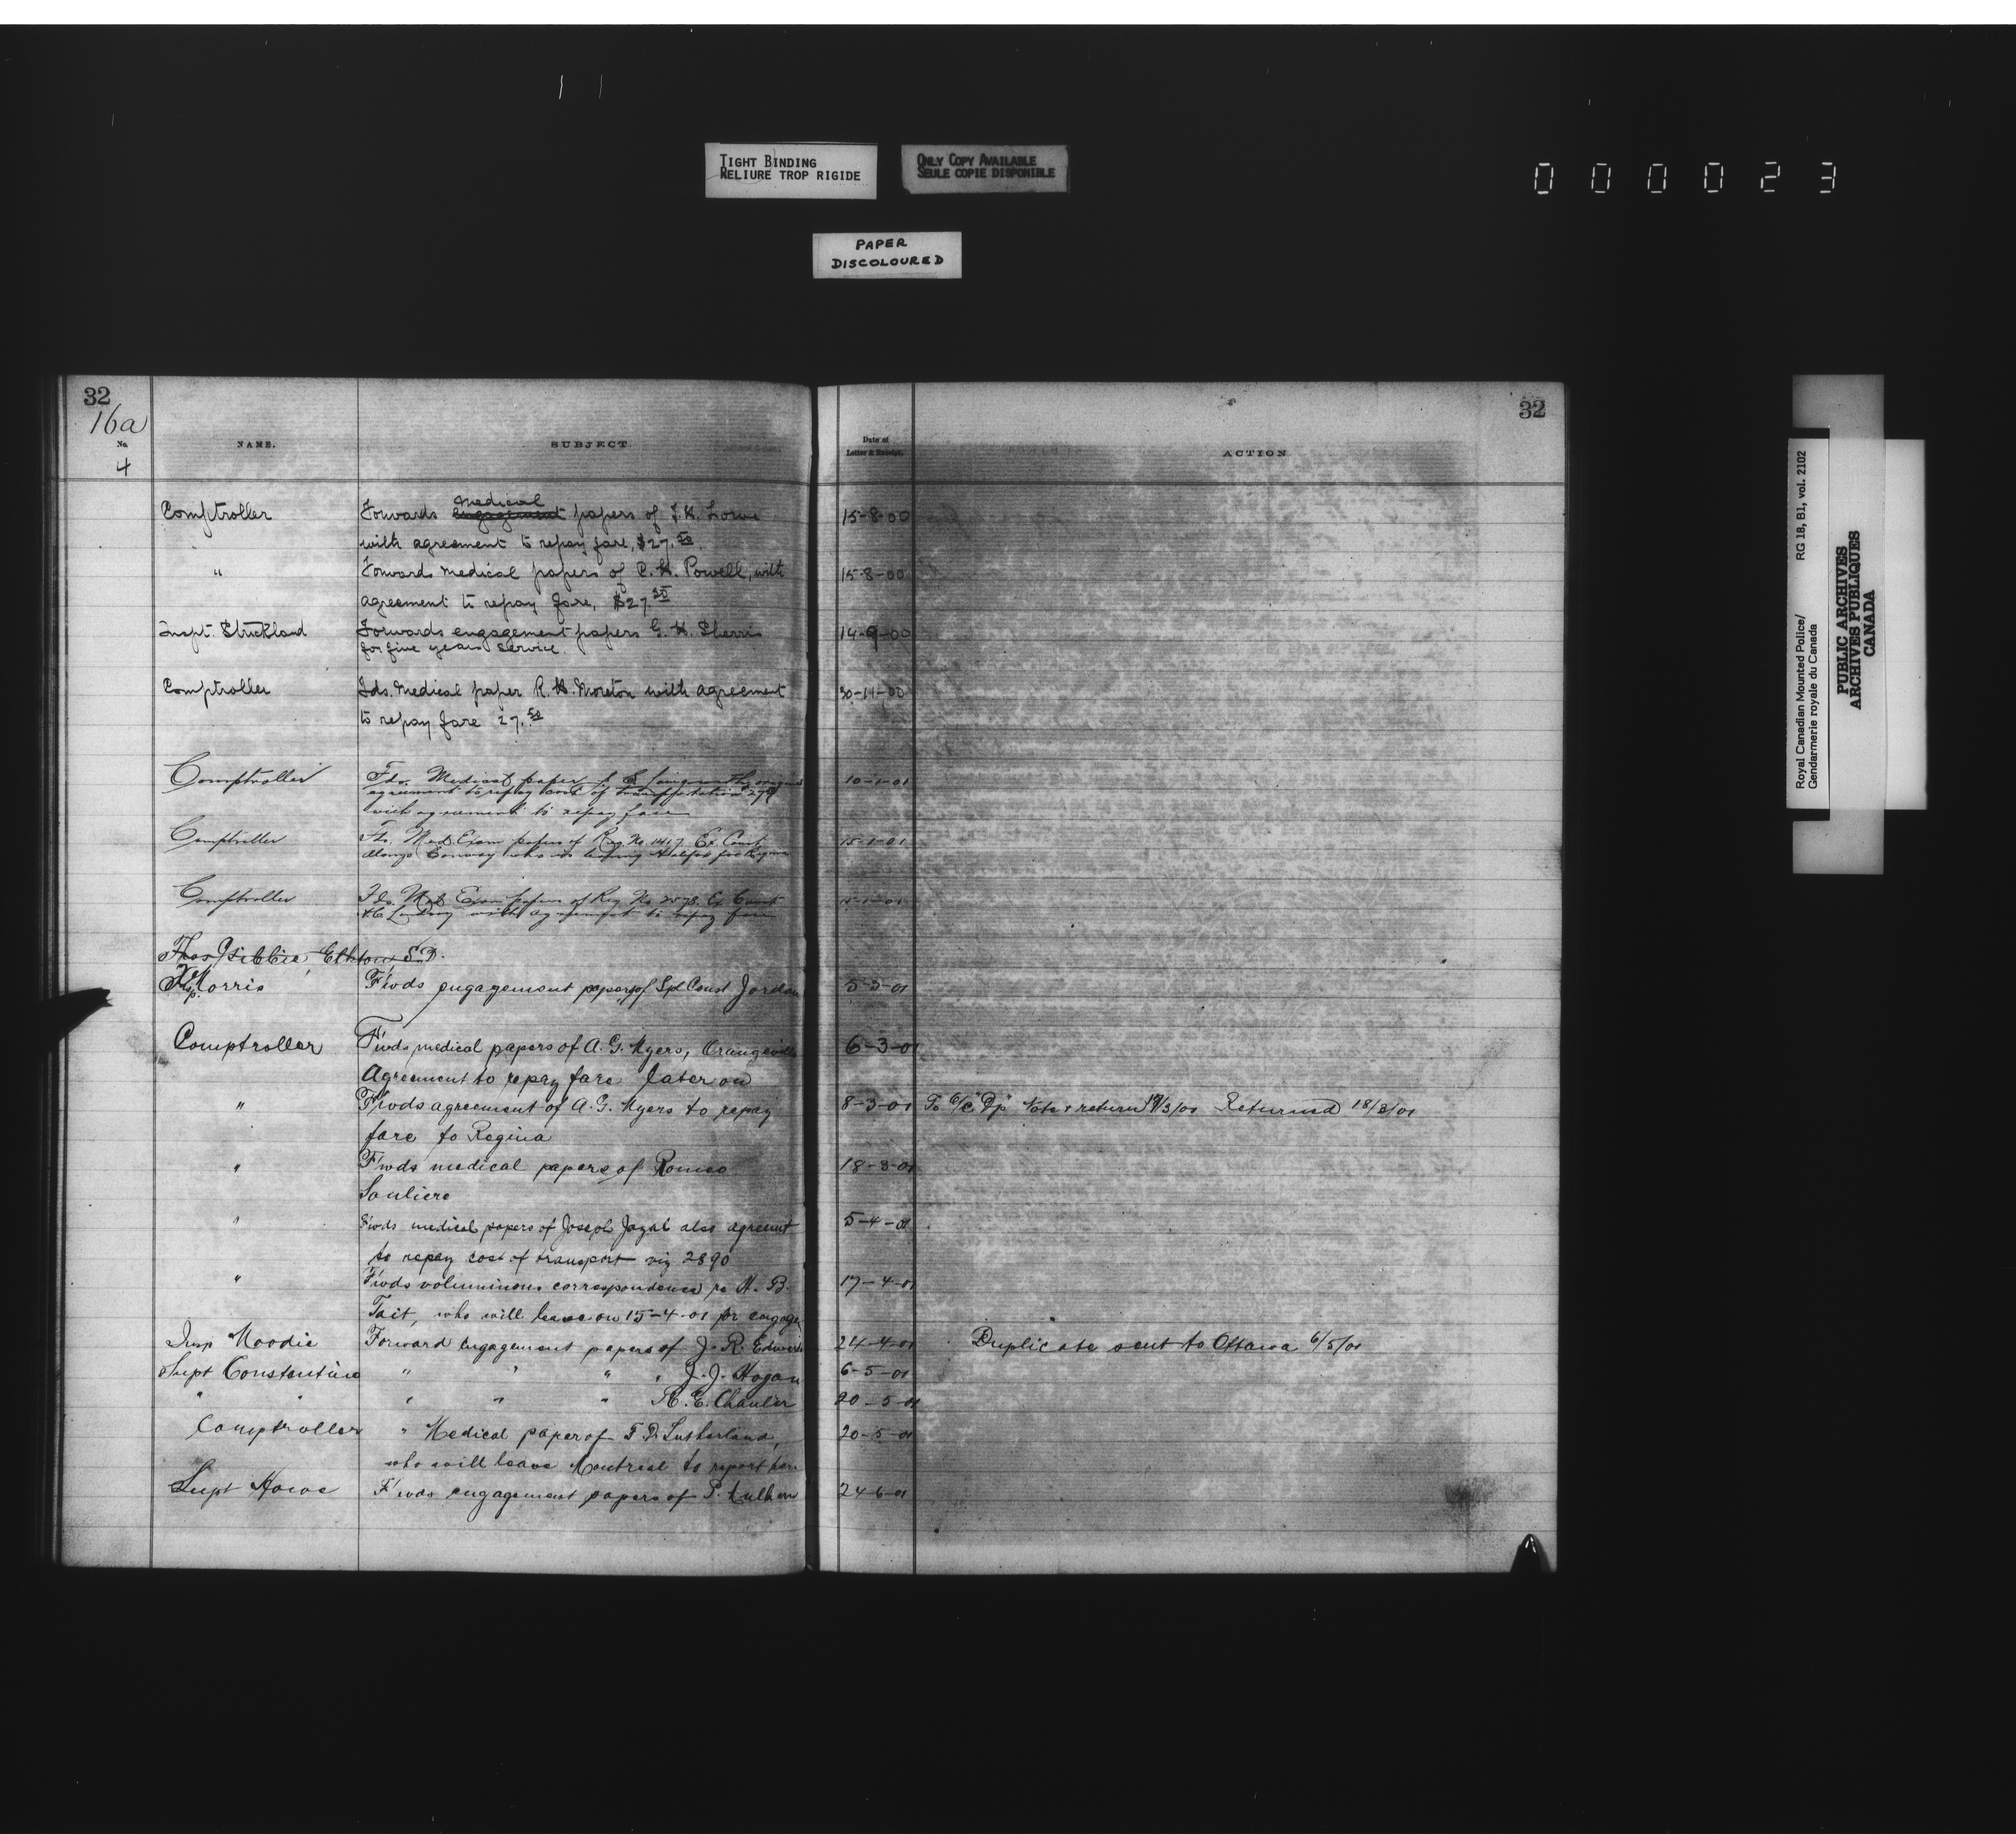 TIGHT BINDING
RELIURE TROP RIGIDE
ONLY COPY AVAILABLE
SEULE COPIE DISPONIBLE
PAPER
DISCOLOURED
000023
32
16a
No.
4
NAME.
SUBJECT
Date of
Letter & Receipt.
ACTION
32
Comptroller Forwards medical engagement papers of J.H. Lowe 15-8-00
with agreement to repay fare, $27.50.
" Forwards medical papers of R.H. Powell, with 15-8-00
agreement to repay fare, $27.50
Inspt. Strickland Forwards engagement papers G.H. Sherris 14-9-00
for five years service.
Comptroller Fds. Medical paper R.H. Moreton with agreement 30-11-00
to repay fare 27.50
Comptroller Fds. Medical paper of 10-1-01
agreement to repay cost of transportation
with agreement to repay fare
Comptroller Fds. Med. Exam papers of Reg. No. 1417 Ex Const 15-1-01
Alonzo Conway who is leaving Halifax for Regina
Comptroller Fds. Med. Exam papers of Reg No 2578. Ex Const 15-1-01
Landry with agreement to repay fare
Thos Gibbie, Elkton S.D.
Insp. Morris F'wds engagement papers of Spl Const Jordan 5-3-01
Comptroller F'wds medical papers of A.G. Myers, Orangeville 6-3-01
Agreement to repay fare later on
" F'wds agreement of A.G. Myers to repay 8-3-01 To O/C "Dp" Note & return /3/01 Returned 18/3/01
fare to Regina
" F'wds medical papers of Romeo 18-3-01
Souliere
" F'wds medical papers of Joseph also agreemt 5-4-01
to repay cost of transport viz 2890
" F'wds voluminous correspondence re H.B. 17-4-01
Tait, who will leave on 15-4-01 for engage
Insp Moodie Forward engagement papers of J.R. 24-4-01 Duplicate sent to Ottawa 6/5/01
Supt Constantine " " " " J.J. Hogan 6-5-01
" " " " " A.E. 20-5-01
Comptroller " Medical paper of F.D. Sutherland, 20-5-01
who will leave Montreal to report here
Supt Howe F'wds engagement papers of P. 24-6-01
Royal Canadian Mounted Police/
Gendarmerie royale du Canada
RG 18, B1, vol. 2102
PUBLIC ARCHIVES
ARCHIVES PUBLIQUES
CANADA